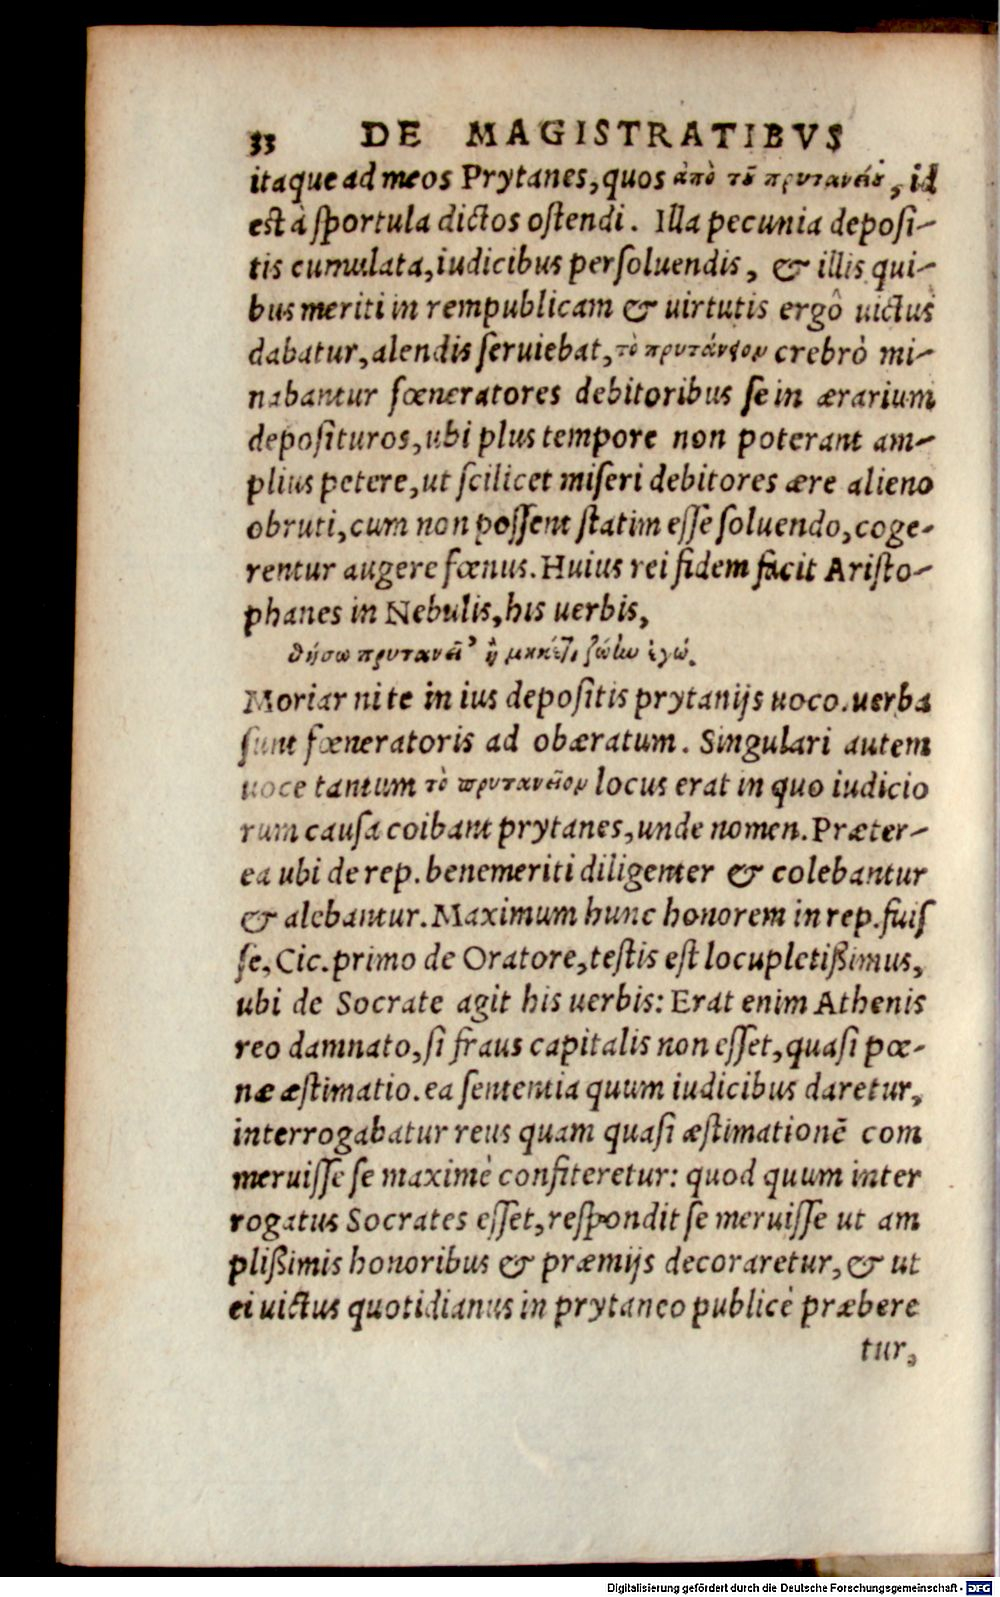 33 DE MAGISTRATIBVS
itaque ad meos Prytanes, quos ἀπὸ τοῦ πρυτανείου, id
est à sportula dictos ostendi. Illa pecunia deposi-
tis cumulata, iudicibus persoluendis, & illis qui-
bus meriti in rempublicam & uirtutis ergô uictus
dabatur, alendis seruiebat, τὸ πρυτάνειον crebrò mi-
nabantur fœneratores debitoribus se in ærarium
deposituros, ubi plus tempore non poterant am-
plius petere, ut scilicet miseri debitores ære alieno
obruti, cum non possent statim esse soluendo, coge-
rentur augere fœnus. Huius rei fidem facit Aristo-
phanes in Nebulis, his uerbis,
θήσω πρυτανεῖ' ἢ μηκέτι ζῴην ἐγώ.
Moriar ni te in ius depositis prytanijs uoco. uerba
sunt fœneratoris ad obæratum. Singulari autem
uoce tantum τὸ πρυτανεῖον locus erat in quo iudicio
rum causa coibant prytanes, unde nomen. Præter-
ea ubi de rep. benemeriti diligenter & colebantur
& alebantur. Maximum hunc honorem in rep. fuis
se, Cic. primo de Oratore, testis est locupletißimus,
ubi de Socrate agit his uerbis: Erat enim Athenis
reo damnato, si fraus capitalis non esset, quasi pœ-
næ æstimatio. ea sententia quum iudicibus daretur,
interrogabatur reus quam quasi æstimationē com
meruisse se maximè confiteretur: quod quum inter
rogatus Socrates esset, respondit se meruisse ut am
plißimis honoribus & præmijs decoraretur, & ut
ei uictus quotidianus in prytaneo publicè præbere
tur,
Digitalisierung gefördert durch die Deutsche Forschungsgemeinschaft - DFG